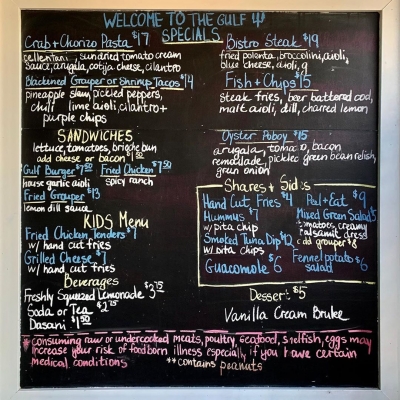 WELCOME TO THE GULF
SPECIALS
Crab + Chorizo Pasta $17
pellentani, sundried tomato cream
sauce, arugula, cotija cheese, cilantro
Blackened Grouper or Shrimp Tacos $14
pineapple slaw, pickled peppers,
chili lime aioli, cilantro +
purple chips
Bistro Steak $19
fried polenta, broccolini, aioli,
blue cheese, aioli, g
Fish + Chips $15
steak fries, beer battered cod,
malt aioli, dill, charred lemon
SANDWICHES
lettuce, tomatoes, brioche bun
add cheese or bacon $1.50
Gulf Burger $7.50 Fried Chicken $7.50
house garlic aioli spicy ranch
Fried Grouper $13
lemon dill sauce
Oyster Poboy $15
arugala, tomato, bacon
remoulade, pickled green bean relish,
green onion
KIDS Menu
Fried Chicken Tenders
w/ hand cut fries
Grilled Cheese
w/ hand cut fries
Beverages
Freshly Squeezed Lemonade $3.75
Soda or Tea $2.75
Dasani $1.50
Shares + Sides
Hand Cut Fries $4
Hummus $7
w/ pita chip
Smoked Tuna Dip $12
w/ pita chips
Guacomole $6
Peel + Eat $9
Mixed Green Salad $5
tomatoes, creamy
balsamic dress
add grouper $8
Fennel potato $6
salad
Dessert $5
Vanilla Cream Brulee
*consuming raw or undercooked meats, poultry, seafood, shelfish, eggs may
increase your risk of foodborn illness especially if you have certain
medical conditions **contains peanuts